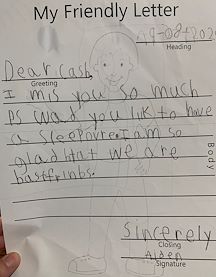 My Friendly Letter
Heading
Dear cash,
Greeting
I mis you so much
Ps wod you lik to have
a sleepovre. I am so
glad that we are
bastfrinbs.
Body
Sincerely
Closing
Aiden
Signature